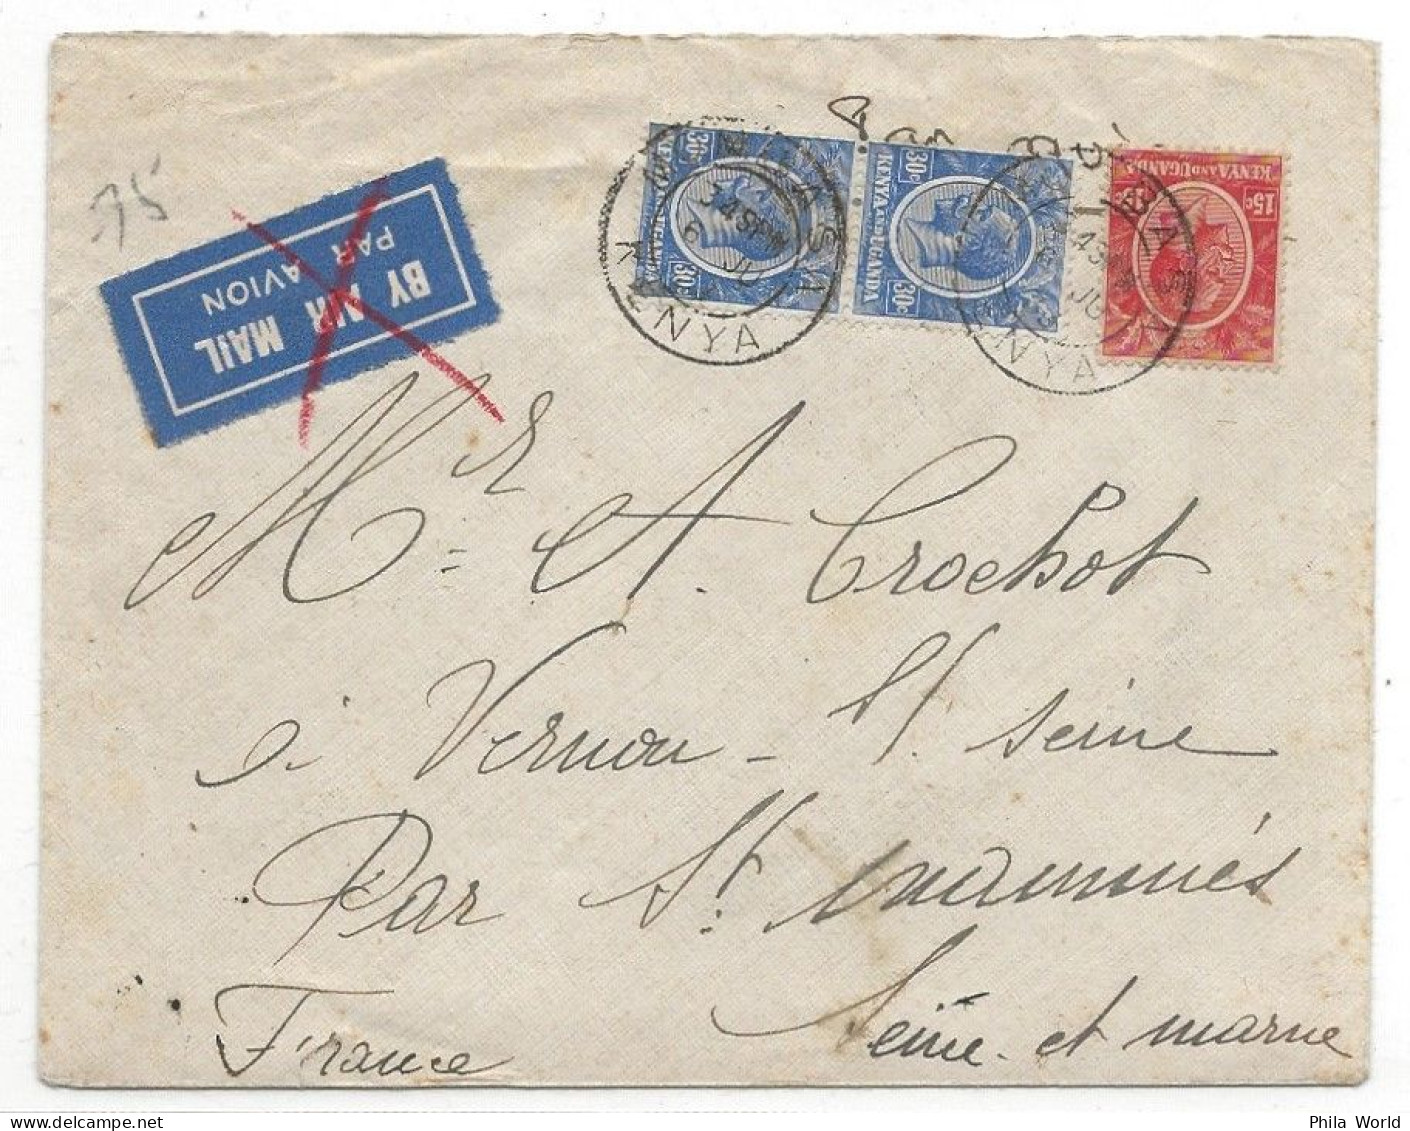 75
BY AIR MAIL
PAR AVION
Par
30c
KENYA AND UGANDA
30c
30c
KENYA AND UGANDA
30c
15c
KENYA AND UGANDA
MOMBASA
KENYA
MOMBASA
KENYA
Mr A. Crochot
à Vernou s/ seine
Par St. mammès
Seine et marne
France
Phila World